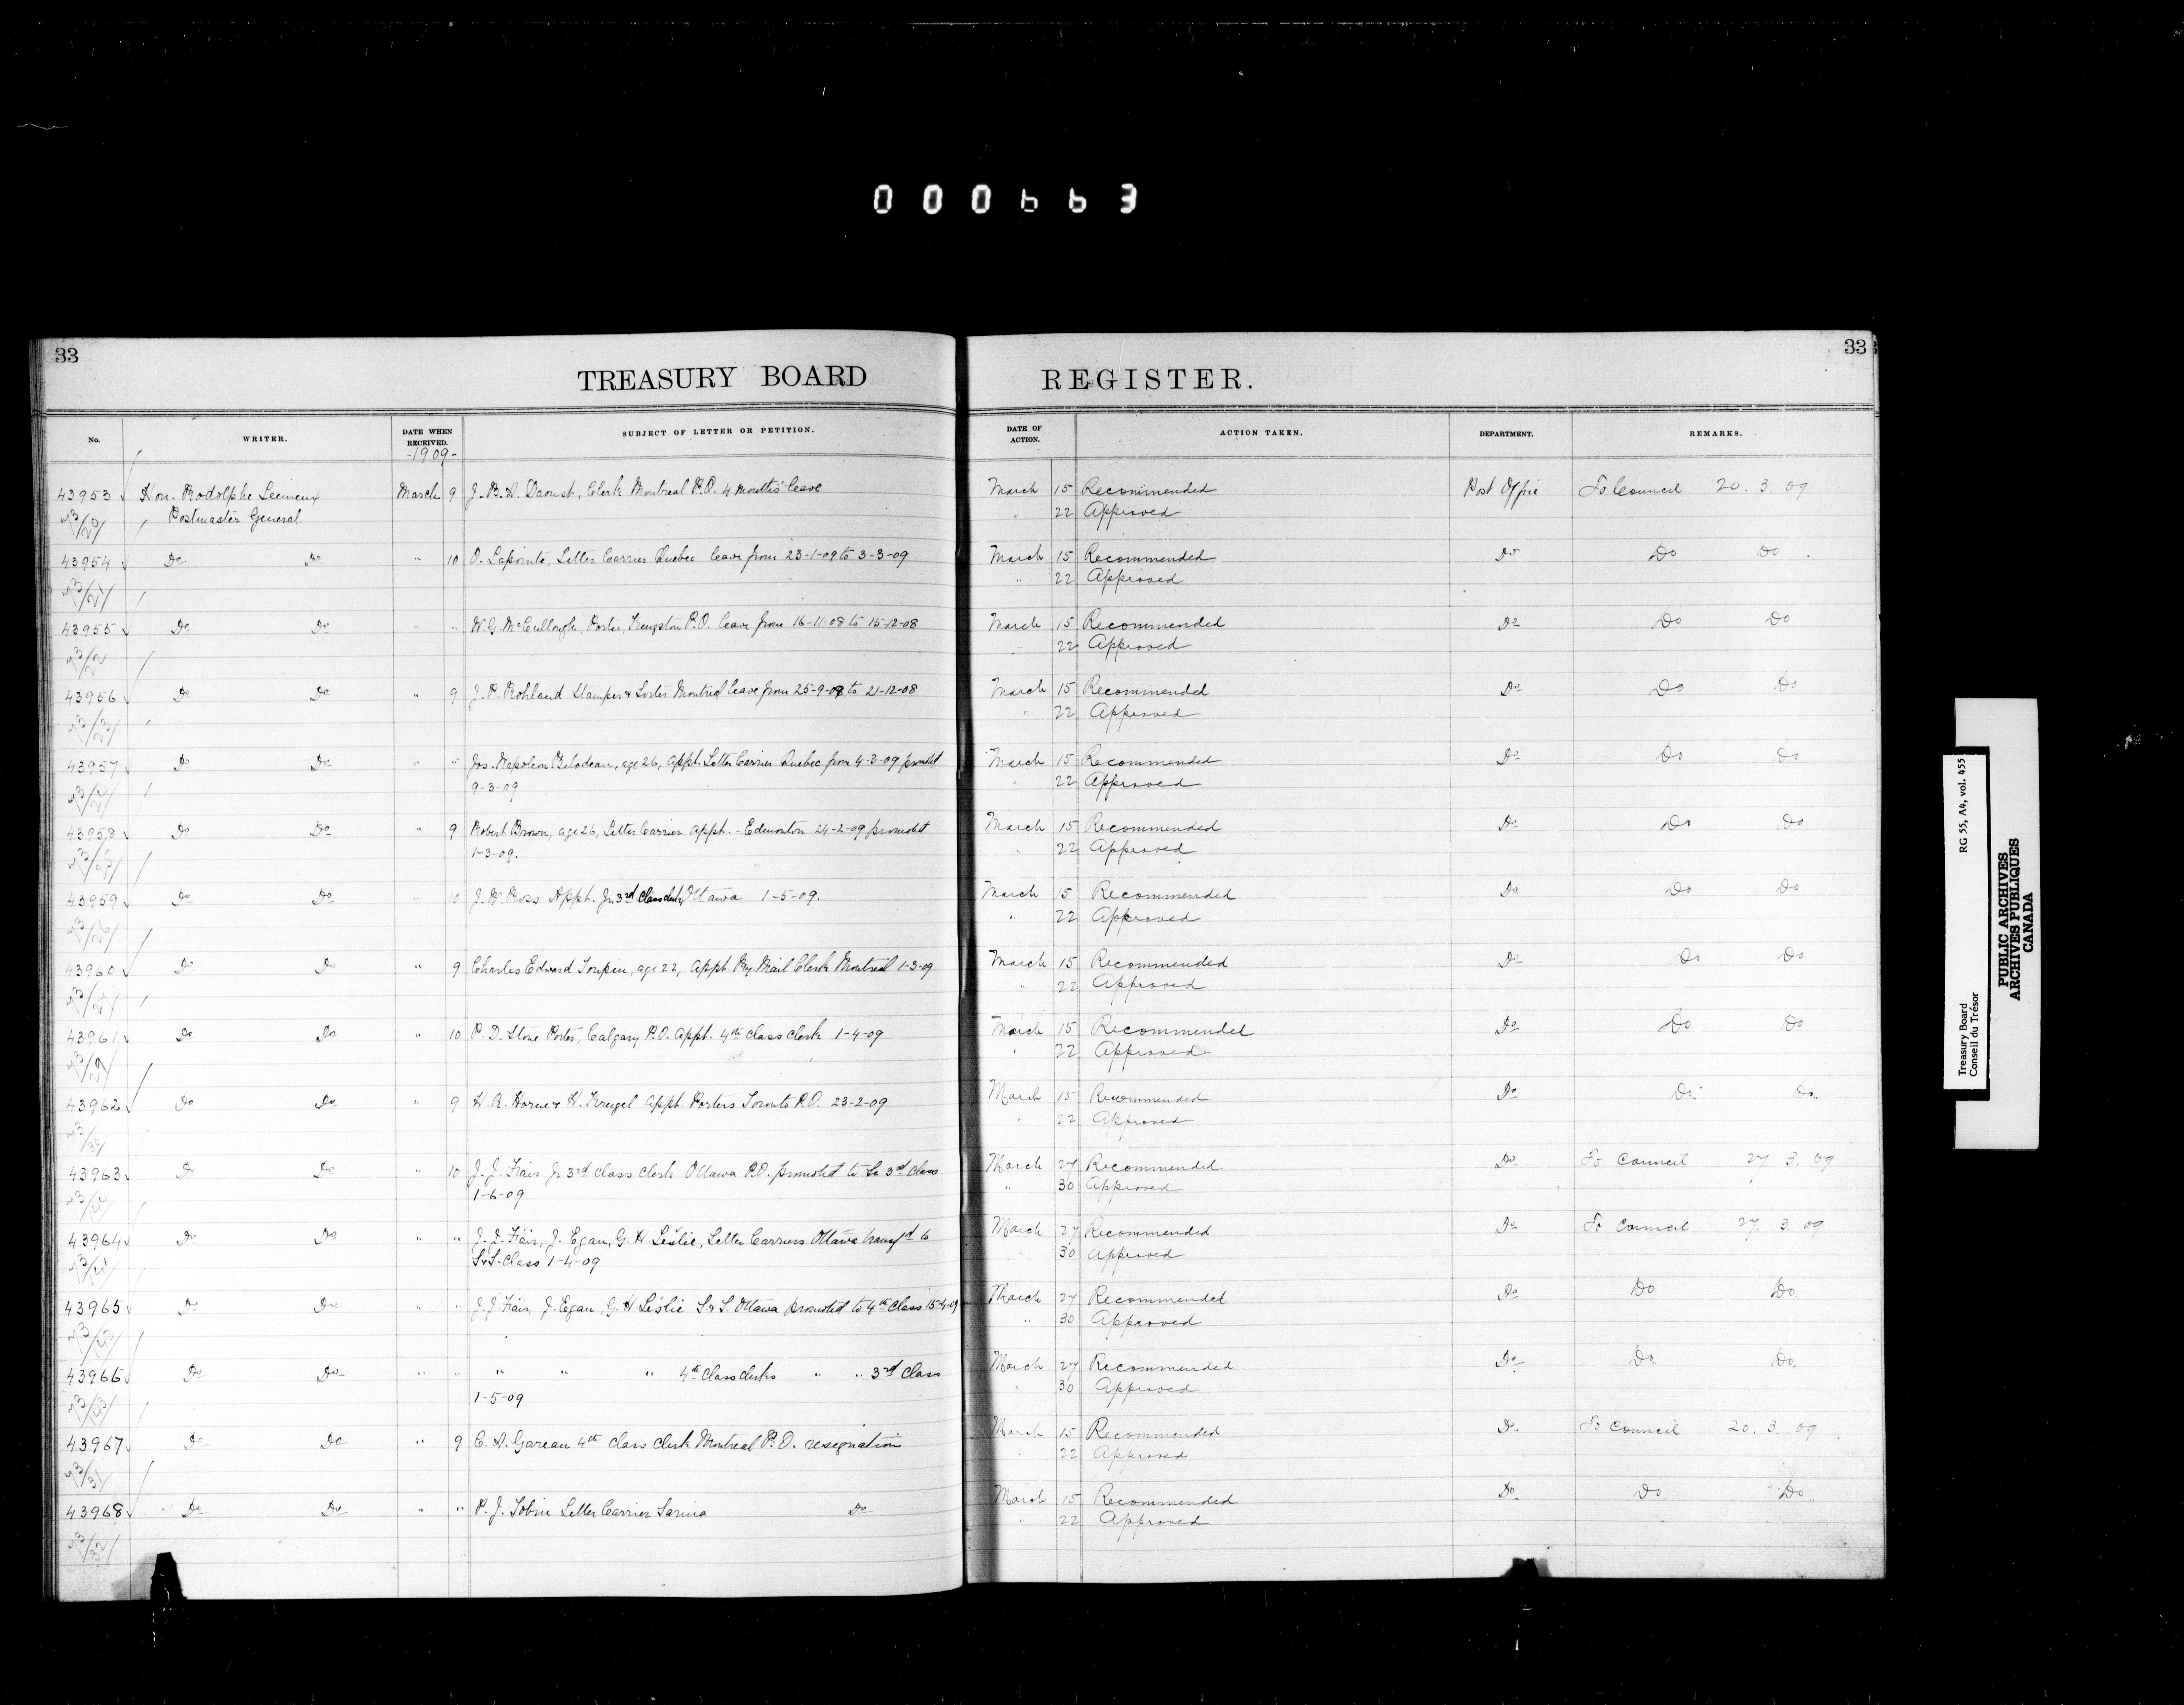 000663
33
33
TREASURY BOARD REGISTER.
No. WRITER. DATE WHEN RECEIVED. SUBJECT OF LETTER OR PETITION. DATE OF ACTION. ACTION TAKEN. DEPARTMENT. REMARKS.
-1909-
43953 Hon. Rodolphe Lemieux March 9 J. B. A. Daoust, Clerk Montreal P.O. 4 months' leave March 15 Recommended Post Office To Council 20.3.09
Postmaster General " 22 Approved
43954 Do Do " 10 O. Lapointe, Letter Carrier Quebec leave from 23-1-09 to 3-3-09 March 15 Recommended Do Do Do
" 22 Approved
43955 Do Do " " W. G. McCullough, Porter, Kingston P.O. leave from 16-11-08 to 15-12-08 March 15 Recommended Do Do Do
" 22 Approved
43956 Do Do " 9 J. P. Rohland Stamper & Sorter Montreal leave from 25-9-08 to 21-12-08 March 15 Recommended Do Do Do
" 22 Approved
43957 Do Do " " Jos. Napoleon Bilodeau, age 26, appt. Letter Carrier Quebec from 4-3-09 promoted March 15 Recommended Do Do Do
9-3-09 " 22 Approved
43958 Do Do " 9 Robert Brown, age 26, Letter Carrier appt. - Edmonton 24-2-09 promoted March 15 Recommended Do Do Do
1-3-09. " 22 Approved
43959 Do Do " 10 J. W. Ross Appt. Jr. 3rd Class clerk, Ottawa 1-5-09. March 15 Recommended Do Do Do
" 22 Approved
43960 Do Do " 9 Charles Edward Toupin, age 22, appt. Ry. Mail Clerk Montreal 1-3-09 March 15 Recommended Do Do Do
" 22 Approved
43961 Do Do " 10 P. D. Stone Porter, Calgary P.O. appt. 4th class clerk 1-4-09 March 15 Recommended Do Do Do
" 22 Approved
43962 Do Do " 9 H. R. Horne & H. Kreigel appt. Porters Toronto P.O. 23-2-09 March 15 Recommended Do Do Do
" 22 Approved
43963 Do Do " 10 J. J. Jr 3rd class clerk Ottawa P.O. promoted to Sr 3rd class March 27 Recommended Do To Council 27 3. 09
1-6-09 " 30 Approved
43964 Do Do " " J. J. J. Egan, G. H. Leslie, Letter Carriers Ottawa transfd to March 27 Recommended Do To Council 27. 3. 09
S & S. Class 1-4-09 30 Approved
43965 Do Do " " J. J. J. Egan, G. H Leslie S. & S. Ottawa promoted to 4th class 15-4-09 March 27 Recommended Do Do Do
" 30 Approved
43966 Do Do " " " " " 4th class clerks " " 3rd class March 27 Recommended Do Do Do
1-5-09 " 30 Approved
43967 Do Do " 9 C. A. Gareau 4th class clerk Montreal P.O. resignation March 15 Recommended Do To Council 20. 3. 09
" 22 Approved
43968 Do Do " " P. J. Tobin Letter Carrier Sarnia Do March 15 Recommended Do Do Do
" 22 Approved
Treasury Board RG 55, A4, vol. 455
Conseil du Trésor
PUBLIC ARCHIVES
ARCHIVES PUBLIQUES
CANADA